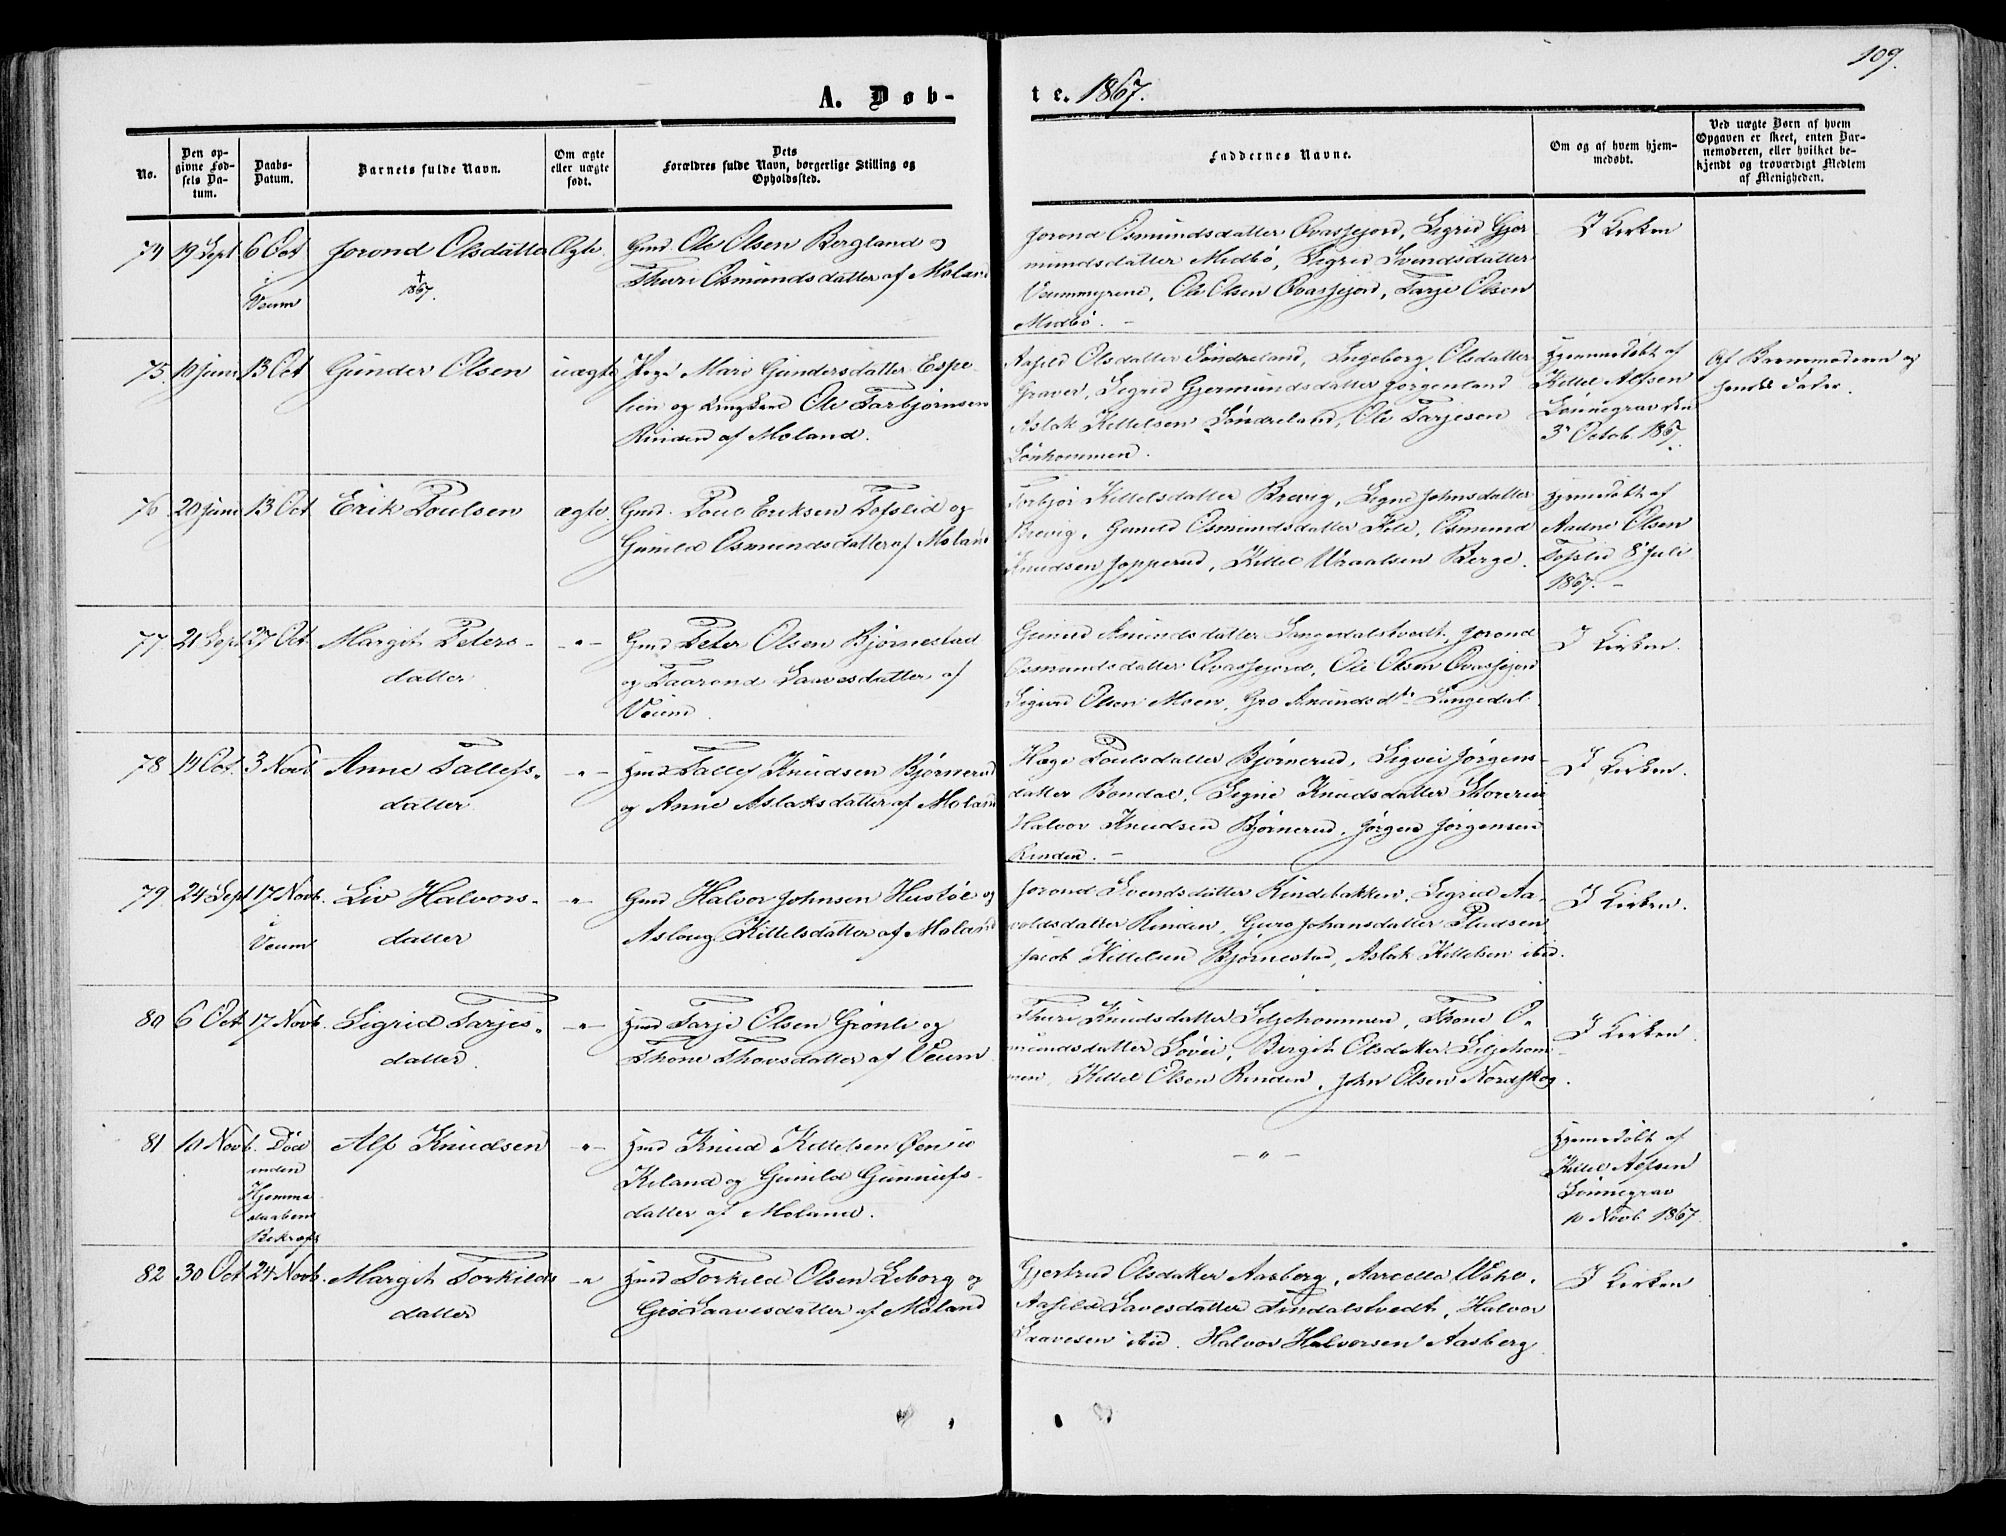 109.
A. Døb-
t e. 1867.
No.
Den op-
givne Fød-
sels Da-
tum.
Daabs-
Datum.
Barnets fulde Navn.
Om ægte
eller uægte
født.
Dets
Forældres fulde Navn, borgerlige Stilling og
Opholdssted.
Faddernes Navne.
Om og af hvem hjem-
medøbt.
Ved uægte Børn af hvem
Opgaven er skeet, enten Bar-
nemoderen, eller hvilket be-
kjendt og troværdigt Medlem
af Menigheden.
74 19 Sept 6 Oct
i
Veum
Jorond Olsdatter
†
1867.
Ægte.
Gmd. Ole Olsen Bergland og
Thuri Osmundsdatter af Moland
Jorond Osmundsdatter Qvasjord, Sigrid Gjer
mundsdatter Midbö, Sigrid Svendsdatter
Veummyrene, Ole Olsen, Tarje Olsen
Midbö. —
I Kirken
75. 10 Juni 13 Oct
Gunder Olsen
uægte
Pige Mari Gundersdatter Espe-
lien og Ungkarl Ole Torbjørnsen
Rinden af Moland.
Aasild Olsdatter Söndreland, Ingeborg Olsdatter
Graver, Sigrid Gjermundsdatter Jørgenland
Aslak Kittelsen Söndreland, Ole Tarjesen
Hjemmedøbt af
Kittel Alfsen
Lönnegrav den
3 Octob. 1867.
Af Barnemoderen og
hendes Fader.
76 20 Juni 13 Oct
Erik Poulsen
ægte
Gmd. Poul Eriksen Tofslid og
Gunild Osmundsdatter af Moland
Torbjör Kittelsdatter Brevig, Signe Johnsdatter
Brevig, Gunild Osmundsdatter Kile, Osmund
Knudsen Jopperud, Kittel Uraalsen Berge.
Hjemmedøbt af
Aadne Olsen
Tofslid 8 Juli
1867. —
77 21 Sept 27 Oct
Margit Peters-
datter
- " -
Gmd Peter Olsen Bjørnestad
og Taarond Saavesdatter af
Veum.
Gunild Knudsdatter Langedalstvedt, Jorond
Osmundsdatter, Ole Olsen
Sigurd Olsen Moen, Gro Knudsdtr Langedal.
I Kirken.
78 14 Oct. 3 Novb
Anne Tallefs-
datter
- " -
Hmd Tallef Knudsen Bjørnerud
og Anne Aslaksdatter af Moland
Hæge Poulsdatter Bjørnerud, Sigvei Jørgens-
datter Bondal, Signe Knudsdatter
Halvor Knudsen Bjørnerud, Jørgen Jørgensen
Rinden. —
I Kirken.
79. 24 Sept 17 Novb.
i
Veum
Liv Halvors-
datter
- " -
Gmd Halvor Johnsen Hustöl og
Aslaug Kittelsdatter af Moland
Jorond Svendsdatter Rindebakken, Sigrid Aa-
voldsdatter Rinden, Guro Johansdatter Pladsen
Jacob Kittelsen Bjørnestad, Aslak Kittelsen ibid.
I Kirken.
80 6 Oct 17 Novb.
Sigrid Tarjes-
datter
- " -
Hmd Tarje Olsen Grönli og
Thone Thovsdatter af Veum
Thuri Knudsdatter Seljehommen, Thone O-
mundsdatter, Bergit Olsdatter Seljehom-
men, Kittel Olsen Rinden, John Olsen Nordskog.
I Kirken.
81 10 Novb.
Död
inden
Hjemme-
daabens
Bekræft
Alf Knudsen
- " -
Hmd Knud Kittelsen
Kiland og Gunild Gunnulfs-
datter af Moland.
— " —
Hjemmedøbt af
Kittel Alfsen
Lönnegrav
10 Novb 1867.
82 30 Oct 24 Novb.
Margit Torkilds
datter
- "
Hmd Torkild Olsen Liborg og
Gro Saavesdatter af Moland
Gjertrud Olsdatter Aasberg,
Aasild Savesdatter Tindalstvedt, Halvor
Saavesen ibid. Halvor Halvorsen Aasberg.
I Kirken